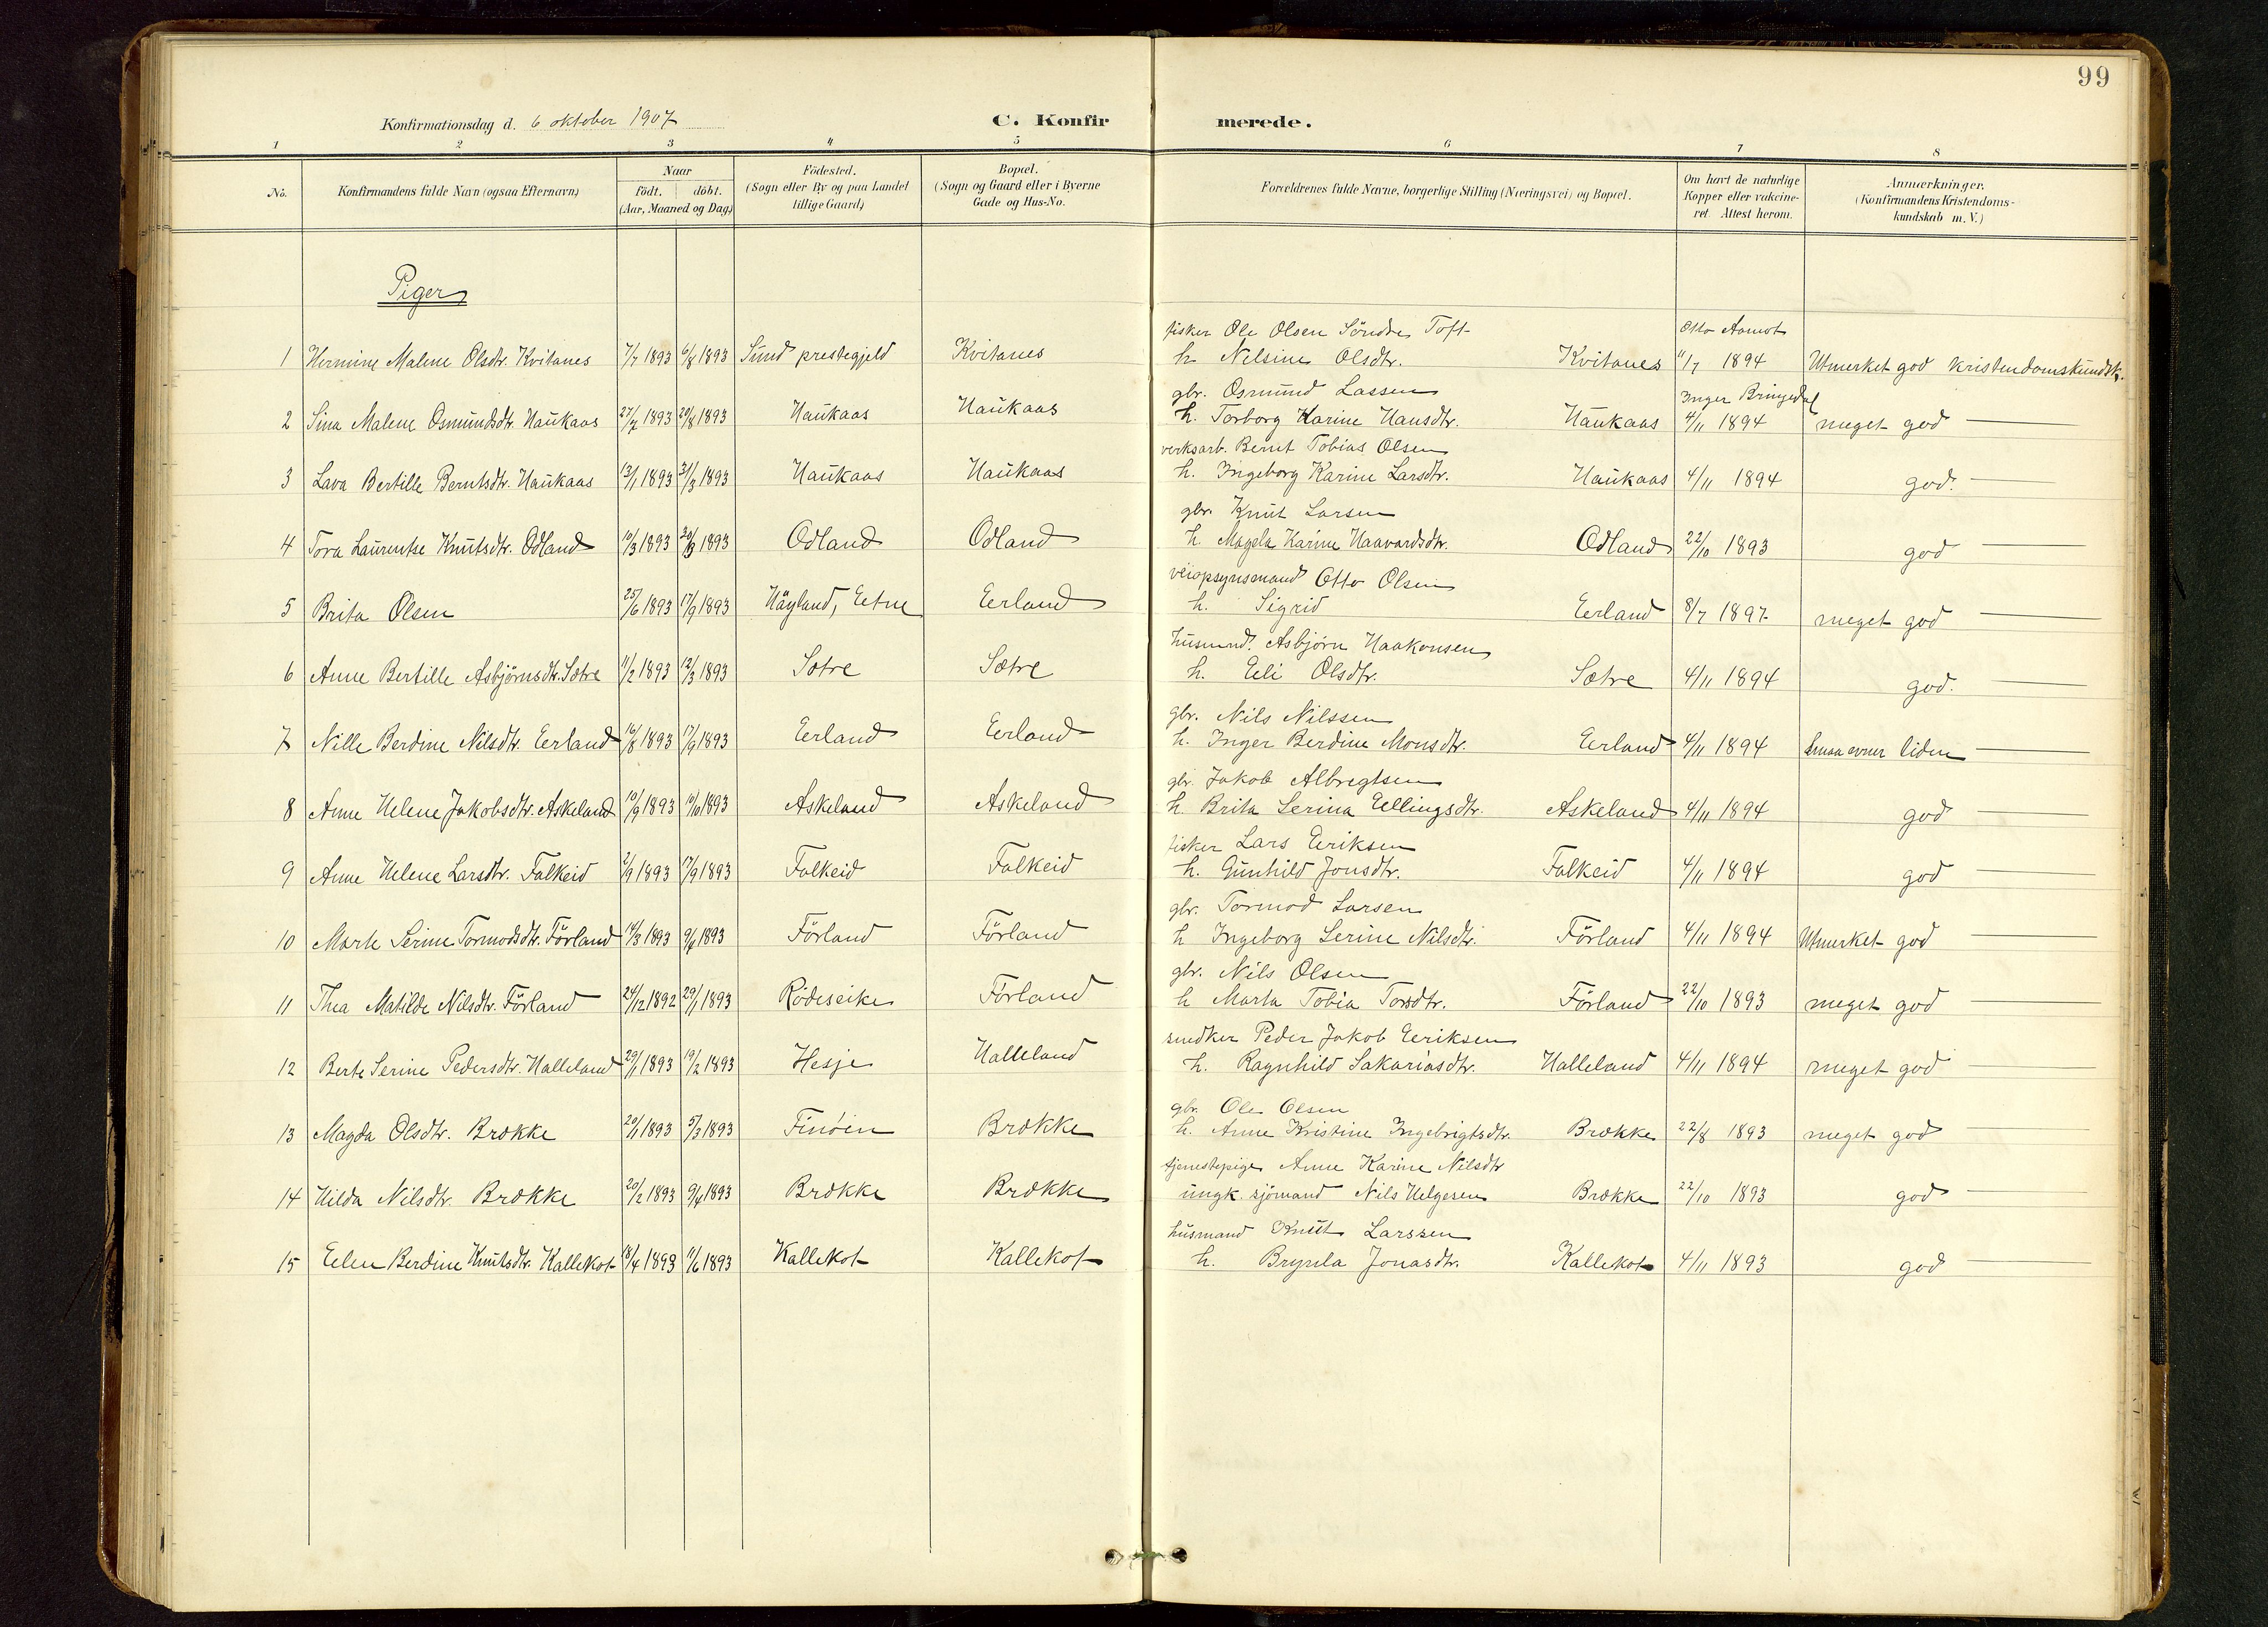 99
Konfirmationsdag d. 6 oktober 1907
C. Konfirmerede.
1 2 3 4 5 6 7 8
No.
Konfirmandens fulde Navn (ogsaa Efternavn)
Naar
födt. döbt.
(Aar, Maaned og Dag)
Födested.
(Sogn eller By og paa Landet
tillige Gaard)
Bopæl.
(Sogn og Gaard eller i Byerne
Gade og Hus-No.
Forældrenes fulde Navne, borgerlige Stilling (Næringsvei) og Bopæl.
Om havt de naturlige
Kopper eller vakcine-
ret. Attest herom.
Anmærkninger.
(Konfirmandens Kristendoms-
kundskab m. V.)
Piger
fisker Ole Olsen Söndre Toft Otto Aamot
1 Hermine Malene Olsdtr. Kvitanes 7/7 1893 6/8 1893 Sund prestegjeld Kvitanes h. Nelsine Olsdtr. Kvitanes 11/7 1894 Utmerket god Kristendomskundsk.
gbr. Osmund Lassen Inger Bringedal
2 Sina Malene Osmundsdtr. Haukaas 27/7 1893 20/8 1893 Haukaas Haukaas h. Torborg Karine Hansdtr. Haukaas 4/11 1894 meget god
verksarb. Bernt Tobias Olsen
3 Lava Bertille Berntsdtr. Haukaas 13/1 1893 31/3 1893 Haukaas Haukaas h. Ingeborg Karine Larsdtr. Haukaas 4/11 1894 god.
gbr. Knut Larsen
4 Tora Laurentse Knutsdtr. Odland 10/3 1893 30/3 1893 Odland Odland h. Magela Karine Haavardsdtr. Odland 22/10 1893 god
veiopsynsmand Otto Olsen
5 Brita Olsen 25/6 1893 17/9 1893 Höyland, Etne Eerland h. Sigrid Eerland 8/7 1897 meget god
husmnd. Asbjörn Haakonsen
6 Anne Bertille Asbjörnsdtr. Sætre 11/2 1893 12/3 1893 Sætre Sætre h. Eli Olsdtr. Sætre 4/11 1894 god.
gbr. Nils Nilssen
7 Nille Berdine Nilsdtr. Eerland 16/8 1893 17/9 1893 Eerland Eerland h. Inger Berdine Monsdtr. Eerland 4/11 1894 smaa evner liden
gbr. Jakob Albregtsen
8 Anne Helene Jakobsdtr. Askeland 10/9 1893 10/10 1893 Askeland Askeland h. Brita Serina Ellingsdtr. Askeland 4/11 1894 god
fisker Lars Eeriksen
9 Anne Helene Larsdtr. Falkeid 2/9 1893 17/9 1893 Falkeid Falkeid h. Gunhild Jonsdtr. Falkeid 4/11 1894 god
gbr. Tormod Larsen
10 Marte Serine Tormodsdtr. Förland 14/3 1893 9/4 1893 Förland Förland h. Ingeborg Serine Nilsdtr. Förland 4/11 1894 Utmerket god
gbr. Nils Olsen
11 Thea Matilde Nilsdtr. Förland 24/12 1892 29/1 1893 Rödeseike Förland h. Marta Tobia Torsdtr. Förland 22/10 1893 meget god
snedker Peder Jakob Eeriksen
12 Berte Serine Pedersdtr. Halleland 29/1 1893 19/2 1893 Hesje Halleland h. Ragnhild Sakariasdtr. Halleland 4/11 1894 meget god
gbr. Ole Olsen
13 Magda Olsdtr. Brøkke 20/1 1893 5/3 1893 Finöen Brøkke h. Anne Kristine Ingebrigtsdtr. Brøkke 22/8 1893 meget god
tjenestepige Anne Karine Nilsdtr
14 Hilda Nilsdtr. Brøkke 20/2 1893 9/4 1893 Brøkke Brøkke ungk. sjömand Nils Helgesen Brøkke 22/10 1893 god
husmand Knut Larssen
15 Eelen Berdine Knutsdtr. Kallekot 18/4 1893 11/6 1893 Kallekot Kallekot h. Brynla Jonasdtr. Kallekot 4/11 1893 god